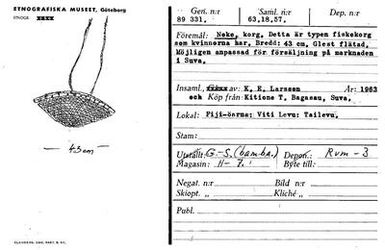 ETNOGRAFISKA MUSEET, Göteborg
— 43 cm —
Gen. n:r Saml. n:r Dep. n:r
89 331. 63,18,57.
Föremål: Neke, korg, Detta är typem fiskekorg
som kvinnorna har, Bredd: 43 cm, Glest flätad,
Möjligen anpassad för försäljning på marknaden
i Suva,
Insaml. av: K, E, Larsson År: 1963
och Köp från: Kitione T, Bagasau, Suva,
Lokal: Fiji-öarna: Viti Levu: Tailevu,
Stam:
Utställt: G-S. (bamba.) Depon.: Rvm - 3
Magasin: H- 7. Byte till:
Negat. n:r Bild n:r
Skiopt. „ Kliché „
Publ.